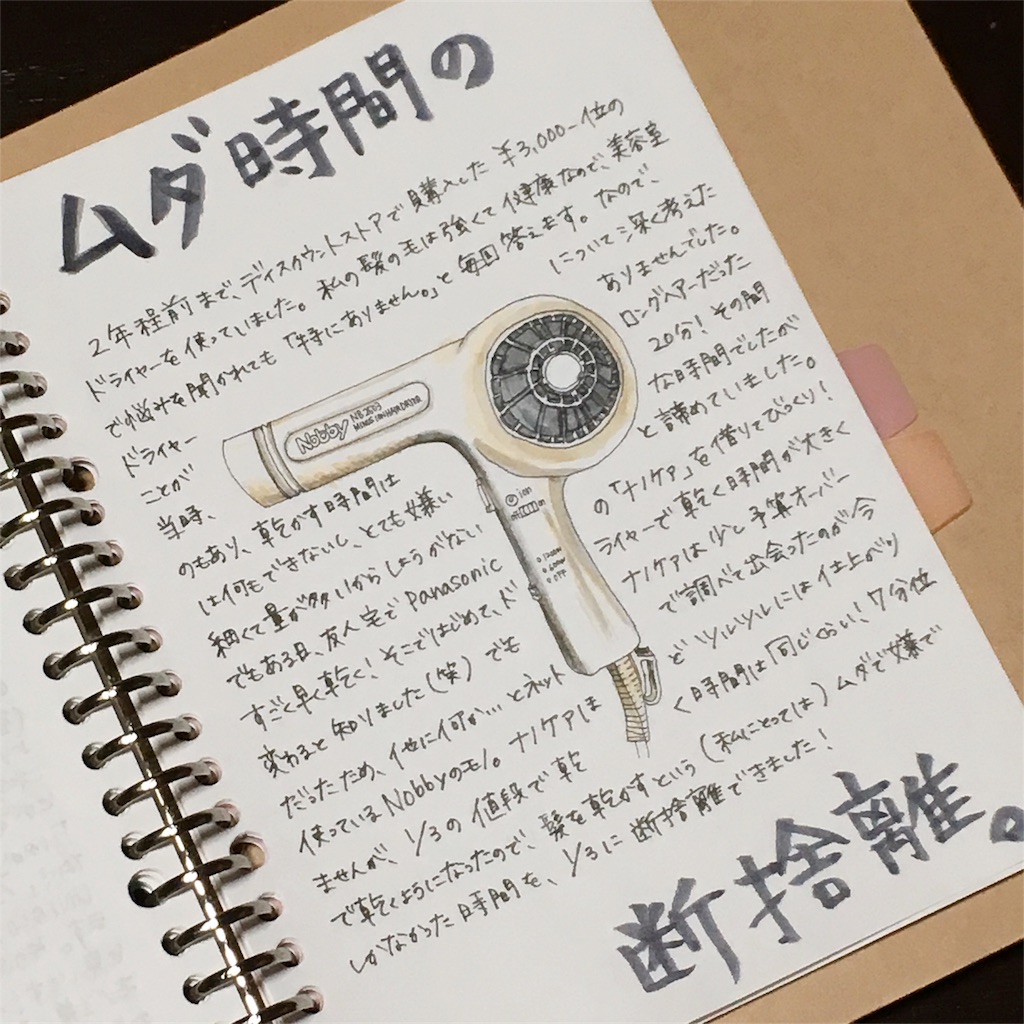 ムダ時間の
2年程前まで、ディスカウントストアで購入した ¥3,000-位の
ドライヤーを使っていました。私の髪の毛は強くて健康なので、美容室
で悩みを聞かれても「特にありません。」と毎回答えます。なので、
ドライヤー について深く考えた
ことが ありませんでした。
当時、 ロングヘアーだった
のもあり、乾かす時間は 20分!その間
は何もできないし、とても嫌い な時間でしたが
細くて量が多いからしょうがない と諦めていました。
でもある日、友人宅でPanasonic の「ナノケア」を借りてびっくり!
すごく早く乾く!そこではじめて、ド ライヤーで乾く時間が大きく
変わると知りました(笑) でも ナノケアは少し予算オーバー
だったため、他に何か…とネット で調べて出会ったのが今
使っているNobbyのモノ。ナノケアほ どツルツルには仕上がり
ませんが、1/3の値段で乾 く時間は同じくらい、7分位
で乾くようになったので、髪を乾かすという(私にとっては)ムダで嫌で
しかなかった時間を、1/3に断捨離できました!
Nobby
MINUS ION HAIR DRYER
ion
断捨離。